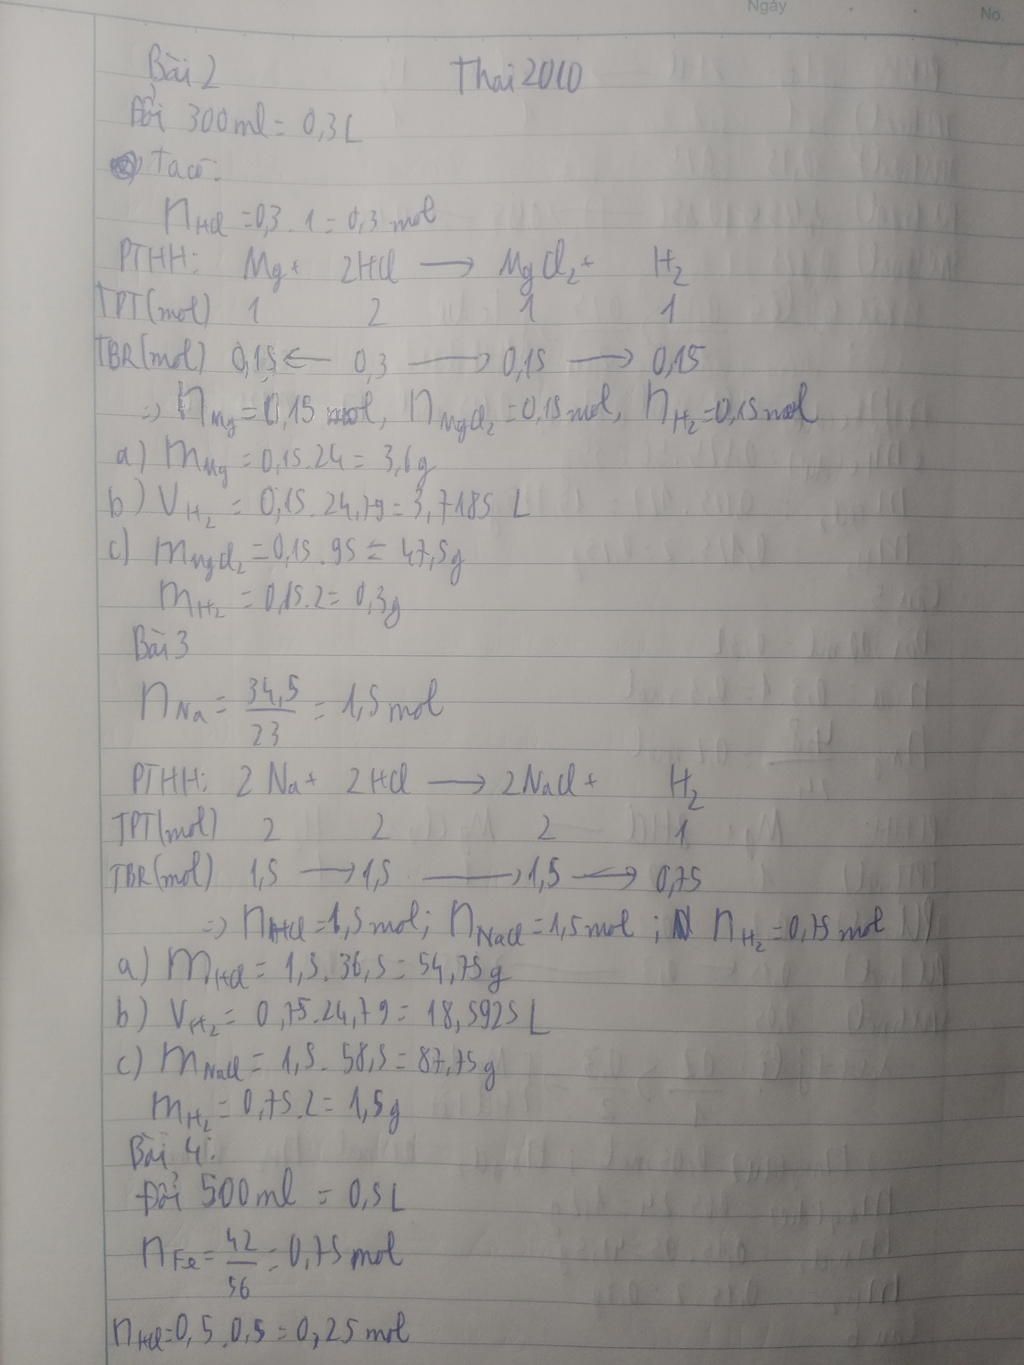 Ngày
No.
Bài 2 Thai2010
Đổi 300ml = 0,3L
Ta có:
nHCl = 0,3 . 1 = 0,3 mol
PTHH: Mg + 2HCl → MgCl2 + H2
TPT(mol) 1 2 1 1
TBR(mol) 0,15 ← 0,3 → 0,15 → 0,15
=> nMg = 0,15 mol, nMgCl2 = 0,15 mol, nH2 = 0,15 mol
a) mMg = 0,15 . 24 = 3,6g
b) VH2 = 0,15 . 24,79 = 3,7185 L
c) mMgCl2 = 0,15 . 95 = 47,5g
mH2 = 0,15 . 2 = 0,3g
Bài 3
nNa = 34,5/23 = 1,5 mol
PTHH: 2Na + 2HCl → 2NaCl + H2
TPT(mol) 2 2 2 1
TBR(mol) 1,5 → 1,5 → 1,5 → 0,75
=> nHCl = 1,5 mol; nNaCl = 1,5 mol; nH2 = 0,75 mol
a) mHCl = 1,5 . 36,5 = 54,75g
b) VH2 = 0,75 . 24,79 = 18,5925 L
c) mNaCl = 1,5 . 58,5 = 87,75g
mH2 = 0,75 . 2 = 1,5g
Bài 4:
Đổi 500ml = 0,5L
nFe = 42/56 = 0,75 mol
nHCl = 0,5 . 0,5 = 0,25 mol